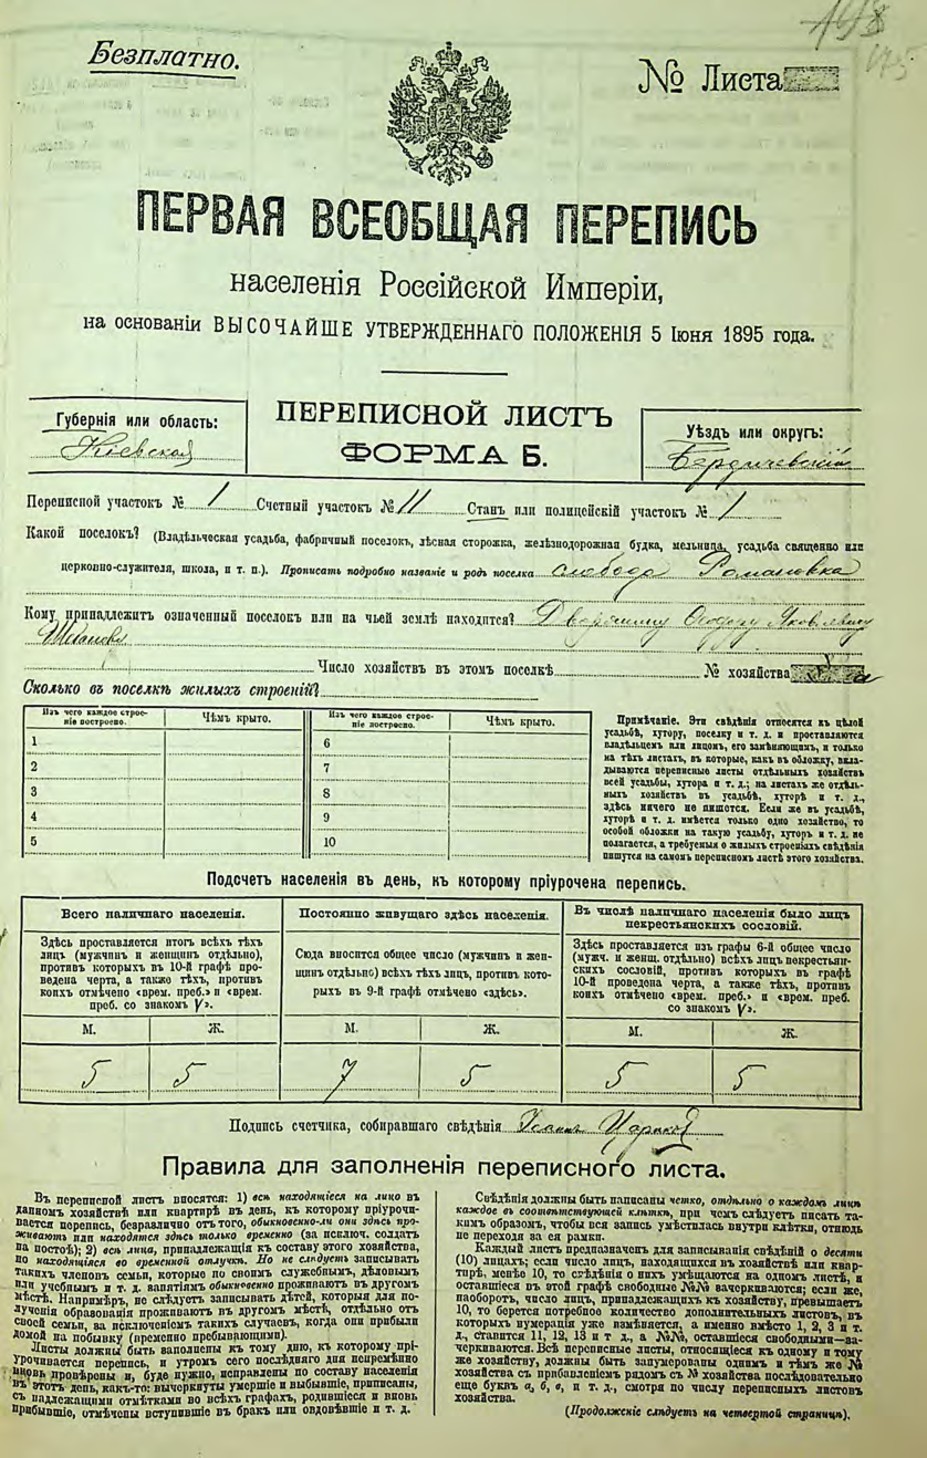 Безплатно.
№ Листа
ПЕРВАЯ ВСЕОБЩАЯ ПЕРЕПИСЬ
населенія Россійской Имперіи,
на основаніи ВЫСОЧАЙШЕ УТВЕРЖДЕННАГО ПОЛОЖЕНІЯ 5 Іюня 1895 года.
Губернія или область:
Кіевская
ПЕРЕПИСНОЙ ЛИСТЪ
ФОРМА Б.
Уѣздъ или округъ:
Бердичевскій
Переписной участокъ № 1 Счетный участокъ № 11 Станъ или полицейскій участокъ № 1
Какой поселокъ? (Владѣльческая усадьба, фабричный поселокъ, лѣсная сторожка, желѣзнодорожная будка, мельница, усадьба священно или
церковно-служителя, школа, и т. п.). Прописать подробно названіе и родъ поселка слобода Романовка
Кому принадлежитъ означенный поселокъ или на чьей землѣ находится? Дворянину Ѳеодору Яковлевичу
Число хозяйствъ въ этомъ поселкѣ № хозяйства
Сколько въ поселкѣ жилыхъ строеній?
Изъ чего каждое строе-
ніе построено.
Чѣмъ крыто.
Изъ чего каждое строе-
ніе построено.
Чѣмъ крыто.
1 6
2 7
3 8
4 9
5 10
Примѣчаніе. Эти свѣдѣнія относятся къ цѣлой
усадьбѣ, хутору, поселку и т. д. и проставляются
владѣльцемъ или лицомъ, его замѣняющимъ, и только
на тѣхъ листахъ, въ которые, какъ въ обложку, вкла-
дываются переписные листы отдѣльныхъ хозяйствъ
всей усадьбы, хутора и т. д.; на листахъ же отдѣль-
ныхъ хозяйствъ въ усадьбѣ, хуторѣ и т. д.,
здѣсь ничего не пишется. Если же въ усадьбѣ,
хуторѣ и т. д. имѣется только одно хозяйство, то
особой обложки на такую усадьбу, хуторъ и т. д. не
полагается, а требуемыя о жилыхъ строеніяхъ свѣдѣнія
пишутся на самомъ переписномъ листѣ этого хозяйства.
Подсчетъ населенія въ день, къ которому пріурочена перепись.
Всего наличнаго населенія.
Здѣсь проставляется итогъ всѣхъ тѣхъ
лицъ (мужчинъ и женщинъ отдѣльно),
противъ которыхъ въ 10-й графѣ про-
ведена черта, а также тѣхъ, противъ
коихъ отмѣчено «врем. преб.» и «врем.
преб. со знакомъ V».
Постоянно живущаго здѣсь населенія.
Сюда вносится общее число (мужчинъ и жен-
щинъ отдѣльно) всѣхъ тѣхъ лицъ, противъ кото-
рыхъ въ 9-й графѣ отмѣчено «здѣсь».
Въ числѣ наличнаго населенія было лицъ
некрестьянскихъ сословій.
Здѣсь проставляется изъ графы 6-й общее число
(мужч. и женщ. отдѣльно) всѣхъ лицъ некрестьян-
скихъ сословій, противъ которыхъ въ графѣ
10-й проведена черта, а также тѣхъ, противъ
коихъ отмѣчено «врем. преб.» и «врем. преб.
со знакомъ V».
М. Ж. М. Ж. М. Ж.
5 5 7 5 5 5
Подпись счетчика, собиравшаго свѣдѣнія
Правила для заполненія переписного листа.
Въ переписной листъ вносятся: 1) всѣ находящіеся на лицо въ
данномъ хозяйствѣ или квартирѣ въ день, къ которому пріурочи-
вается перепись, безразлично отъ того, обыкновенно-ли они здѣсь про-
живаютъ или находятся здѣсь только временно (за исключ. солдатъ
на постоѣ); 2) всѣ лица, принадлежащія къ составу этого хозяйства,
но находящіяся во временной отлучкѣ. Но не слѣдуетъ записывать
такихъ членовъ семьи, которые по своимъ служебнымъ, дѣловымъ
или учебнымъ и т. д. занятіямъ обыкновенно проживаютъ въ другомъ
мѣстѣ. Напримѣръ, не слѣдуетъ записывать дѣтей, которыя для по-
лученія образованія проживаютъ въ другомъ мѣстѣ, отдѣльно отъ
своей семьи, за исключеніемъ такихъ случаевъ, когда они прибыли
домой на побывку (временно пребывающими).
Листы должны быть заполнены къ тому дню, къ которому прі-
урочивается перепись, и утромъ сего послѣдняго дня непремѣнно
вновь провѣрены и, буде нужно, исправлены по составу населенія
въ этотъ день, какъ-то: вычеркнуты умершіе и выбывшіе, приписаны,
съ надлежащими отмѣтками во всѣхъ графахъ, родившіеся и вновь
прибывшіе, отмѣчены вступившіе въ бракъ или овдовѣвшіе и т. д.
Свѣдѣнія должны быть написаны четко, отдѣльно о каждомъ лицѣ
каждое въ соотвѣтствующей клѣткѣ, при чемъ слѣдуетъ писать та-
кимъ образомъ, чтобы вся запись умѣстилась внутри клѣтки, отнюдь
не переходя за ея рамки.
Каждый листъ предназначенъ для записыванія свѣдѣній о десяти
(10) лицахъ; если число лицъ, находящихся въ хозяйствѣ или квар-
тирѣ, менѣе 10, то свѣдѣнія о нихъ умѣщаются на одномъ листѣ, и
оставшіеся въ этой графѣ свободные №№ вычеркиваются; если же,
наоборотъ, число лицъ, принадлежащихъ къ хозяйству, превышаетъ
10, то берется потребное количество дополнительныхъ листовъ, въ
которыхъ нумерація уже измѣняется, а именно вмѣсто 1, 2, 3 и т.
д., ставится 11, 12, 13 и т. д., а №№, оставшіеся свободными—за-
черкиваются. Всѣ переписные листы, относящіеся къ одному и тому
же хозяйству, должны быть занумерованы однимъ и тѣмъ же №
хозяйства съ прибавленіемъ рядомъ съ № хозяйства послѣдовательно
еще буквъ а, б, в, и т. д., смотря по числу переписныхъ листовъ
хозяйства.
(Продолженіе слѣдуетъ на четвертой страницѣ).